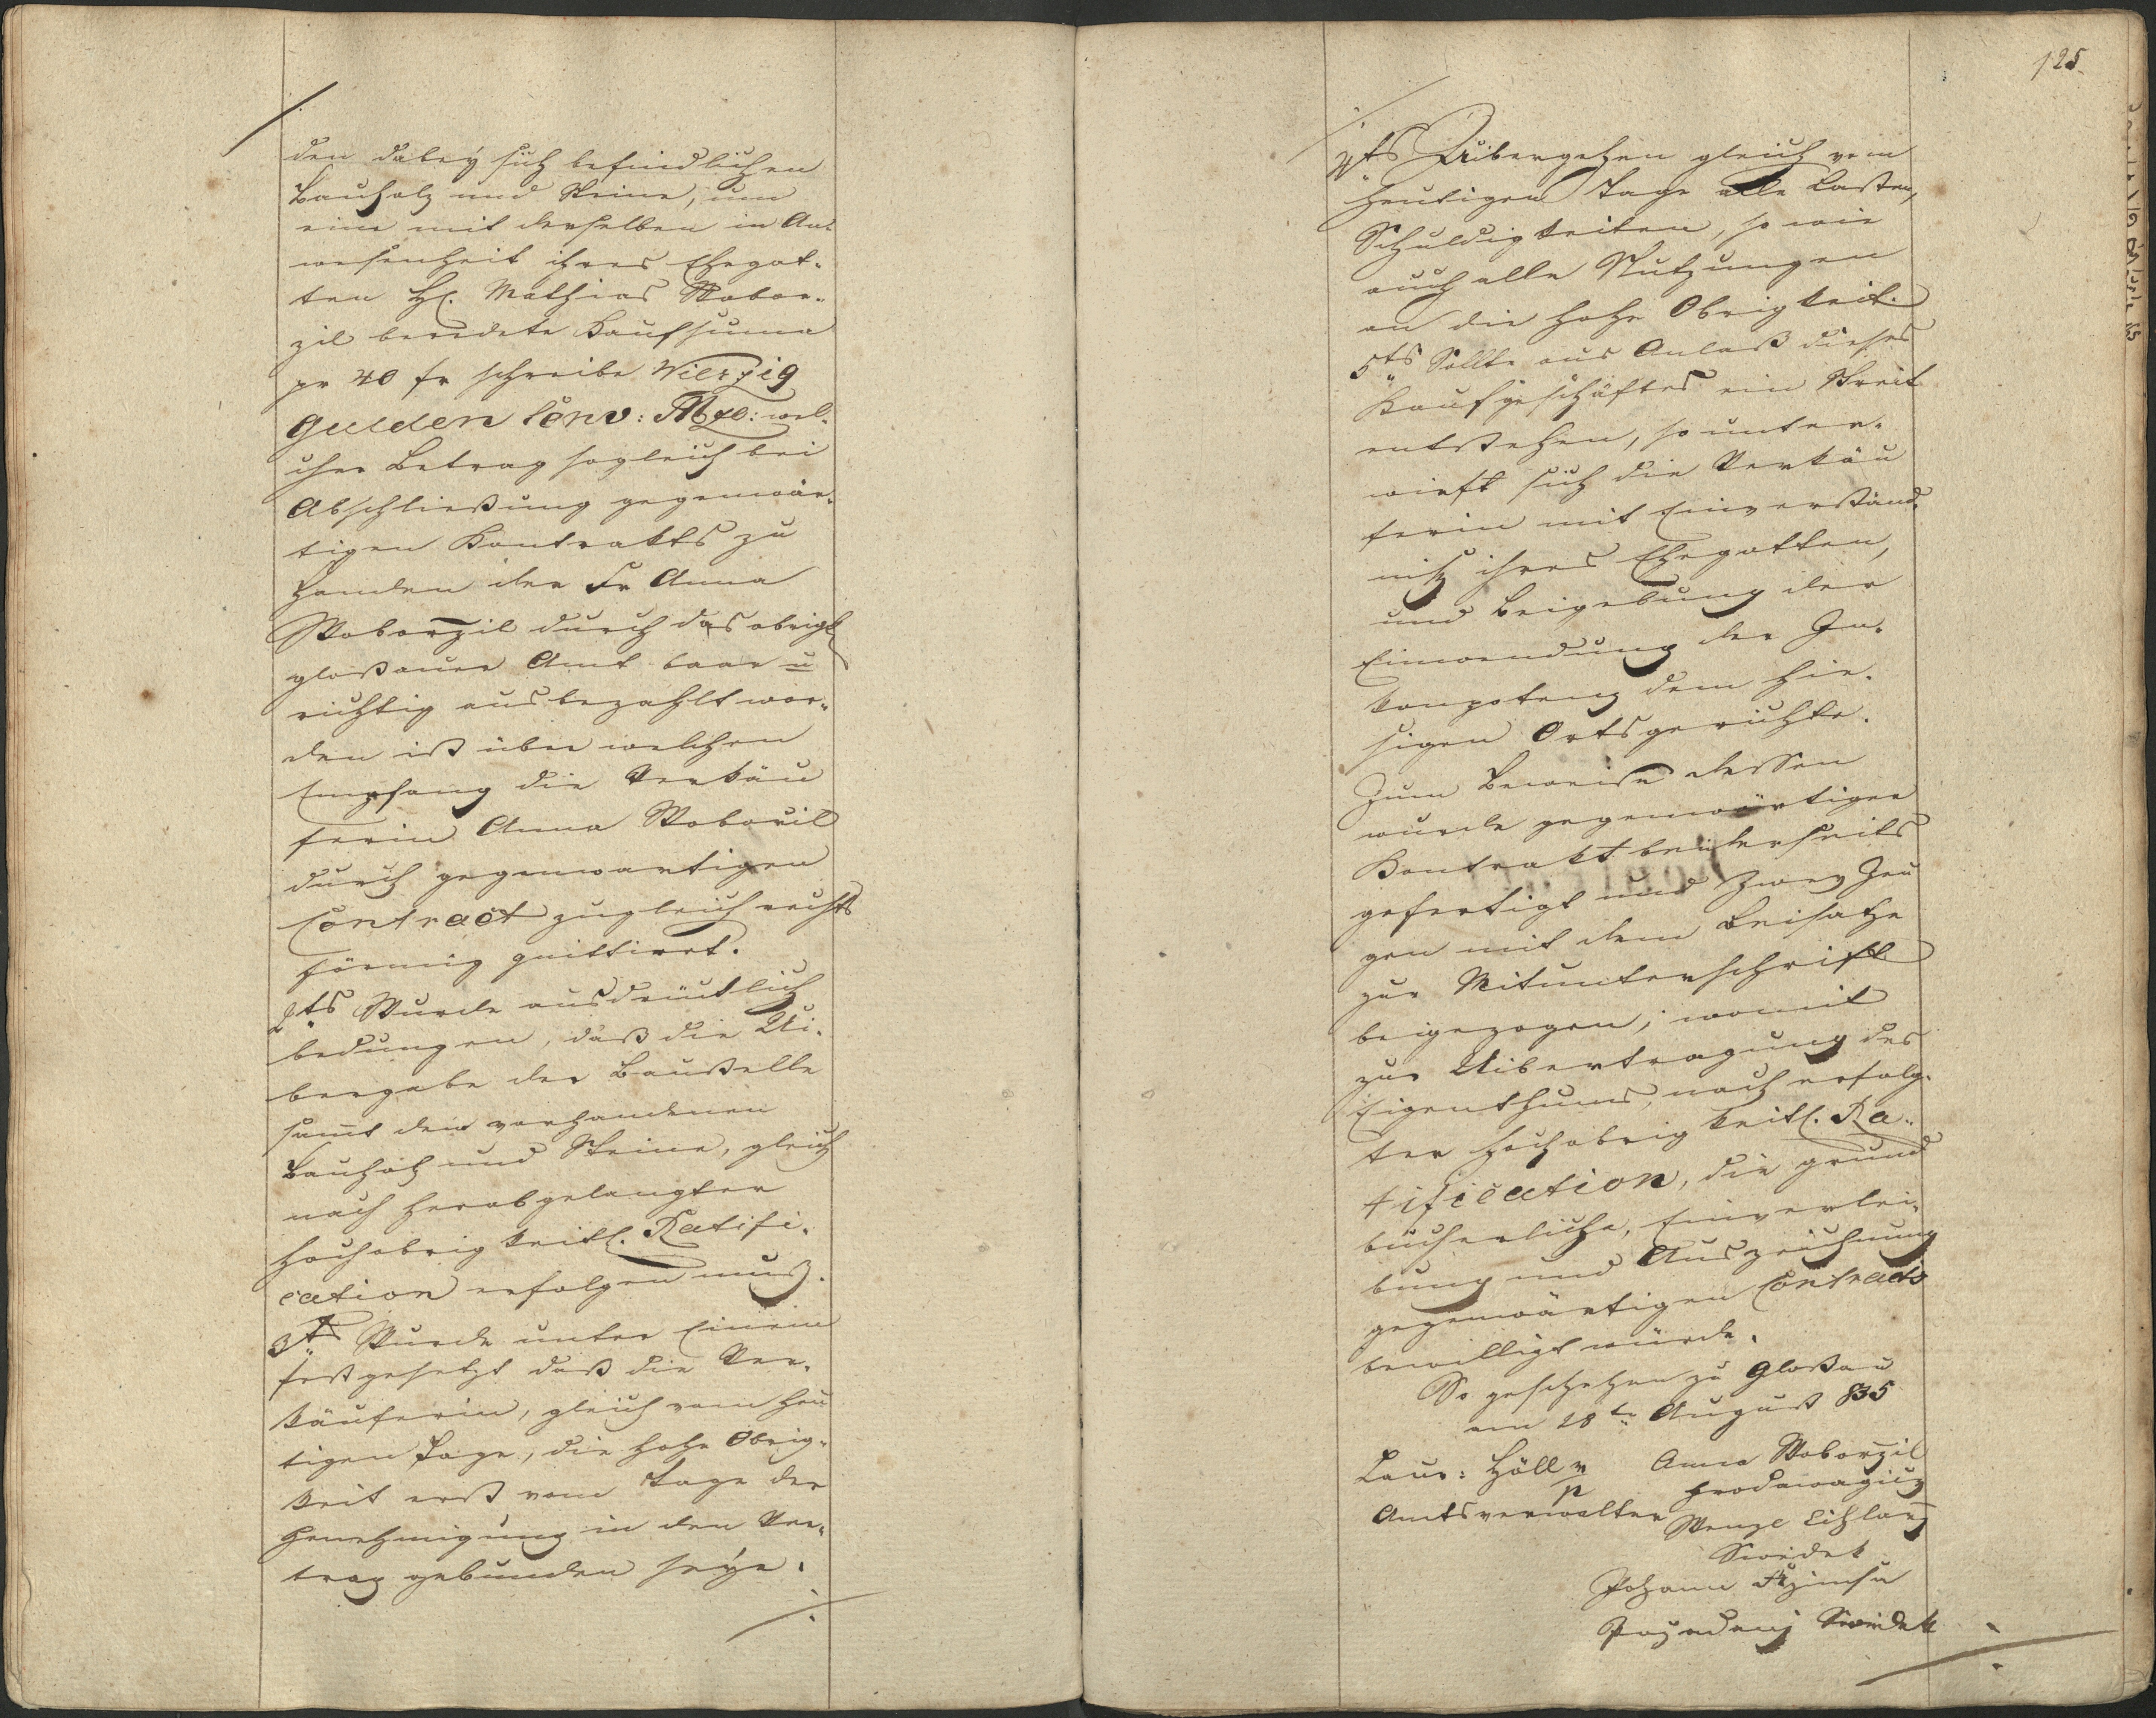 den dabey sich befindlichen
Bauholz und Steine, um
eine mit derselben in An-
wesenheit ihres Ehegat-
ten H. Mathias Wobor-
zil beredete Kaufsuma
pr 40 fr schreibe Vierzig
Gulden Conv: Mze: wel-
cher Betrag sogleich bei
Abschließung gegenwär-
tigen Kontrakts zu
Handen der Fr Anna
Woborzil durch das obrigk
gloßauer Amt baar u
richtig ausbezahlt wor-
den ist über welchen
Empfang die Verkäu
ferin Anna Woboril
durch gegenwartigen
Contract zugleich rechts
förmig quittirt.
2ts Wurde ausdrücklich
bedungen, daß die Ui-
bergabe der Baustelle
samt den vorhandenen
Bauholz und Steine, gleich
nach herabgelangter
hochobrigkeitl. Ratifi-
cation erfolgen muß.
3ts Wurde unter Einem
festgesetzt daß die Ver-
käuferin, gleich vom heu
tigen Tage, die hohe Obrig-
keit erst vom Tage der
Genehmigung in den Ver-
trag gebunden seye.
125
4ts Uibergehen gleich vom
heutigen Tage alle Lasten,
Schuldigkeiten, so wie
auch alle Nutzungen
an die hohe Obrigkeit.
5ts Sollte aus Anlaß dieses
Kaufgeschäftes ein Streit
entstehen, so unter-
wirft sich die Verkäu
ferin mit Einverständ-
niß ihres Ehegatten,
und Beigebung der
Einwendung der In-
kompetenz dem hie-
sigen Ortsgerichte.
Zum Beweise dessen
wurde gegenwärtiger
Kontrakt beiderseits
gefertigt und zwey Zeu
gen mit dem Beisatze
zur Mitunterschrift
beigezogen, womit
zur Uibertragung des
Eigenthums, nach erfolg-
ter hochobrigkeitl. Ra-
tification, die grund
bücherliche, Einverlei-
bung und Auszeichnung
gegenwärtigen Contracts
bewilligt würde.
So geschehen zu Gloßau
am 28te August 835
Laur: Höll m Anna Woborzil
p Prodawagicz
Amtsverwalter Wenzl Cihlarz
Swědek
Johann
Swědek